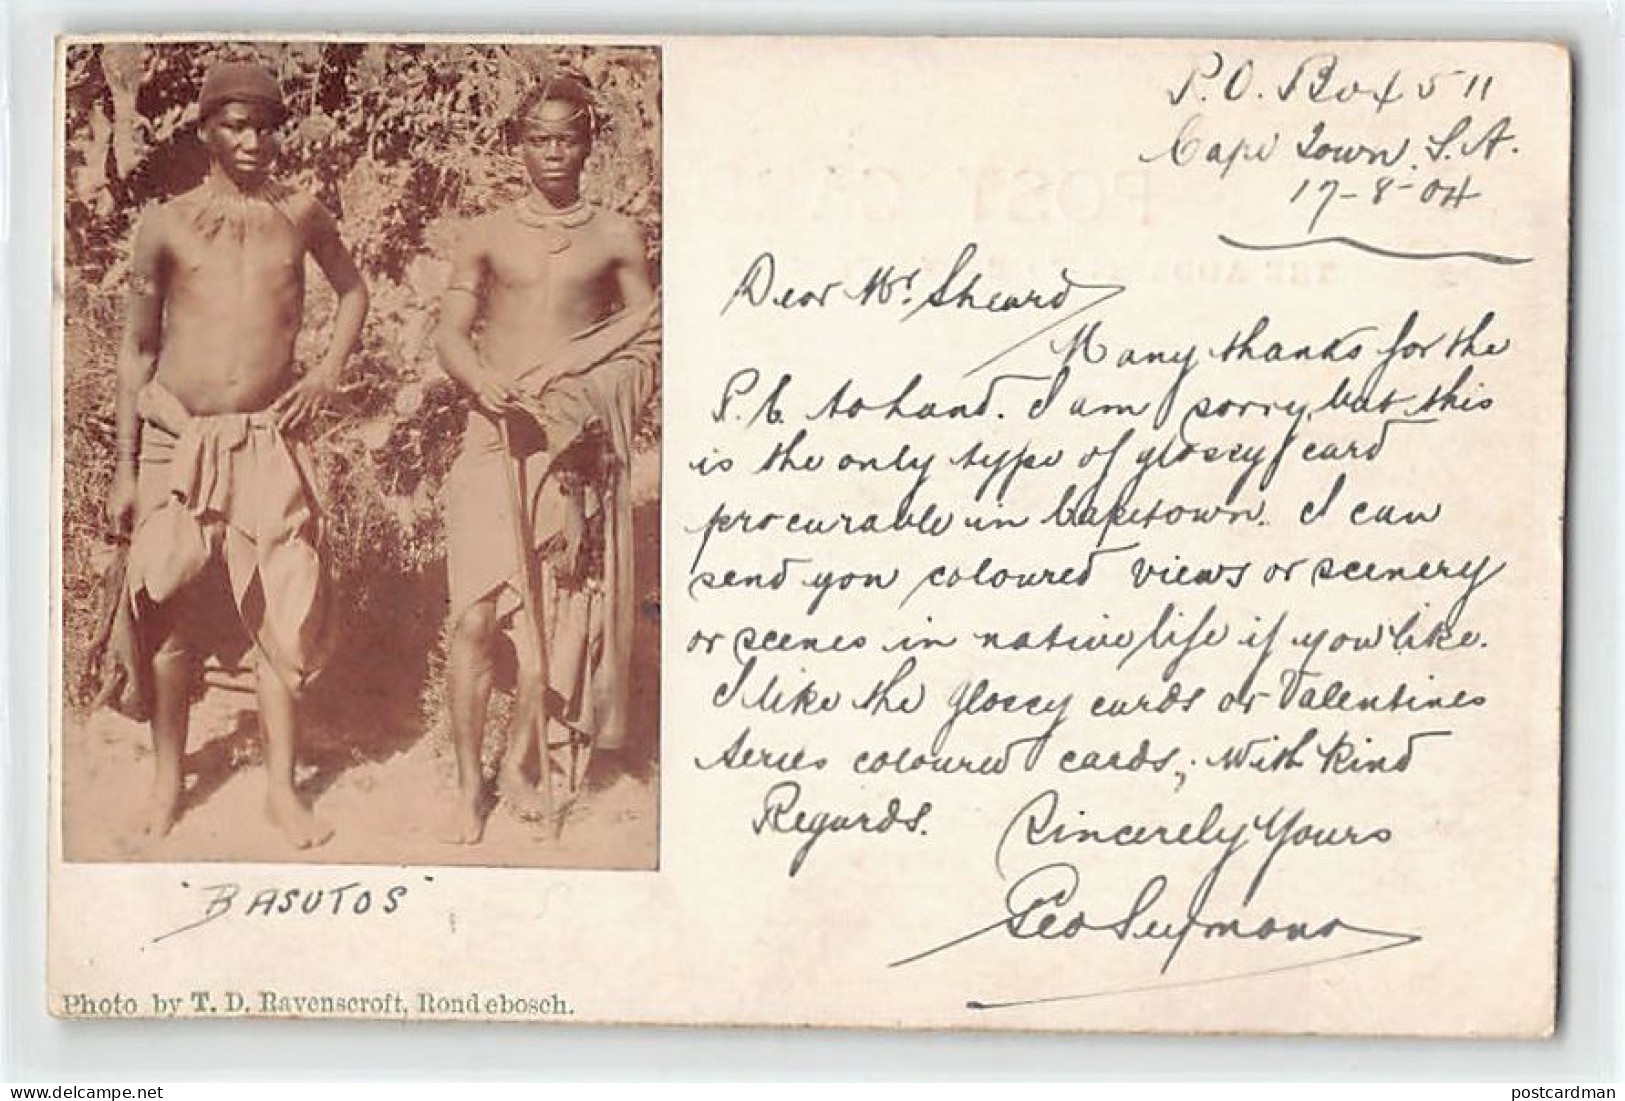 P.O. Box 511
Cape Town. S.A.
17-8-04
Dear Mr. Sheard
Many thanks for the
P.C. to hand. I am sorry, but this
is the only type of glossy card
procurable in Capetown. I can
send you coloured views or scenery
or scenes in native life if you like.
I like the glossy cards or Valentines
series coloured cards, with kind
Regards. Sincerely Yours
Geo Seymour
"BASUTOS"
Photo by T. D. Ravenscroft, Rondebosch.
postcardman